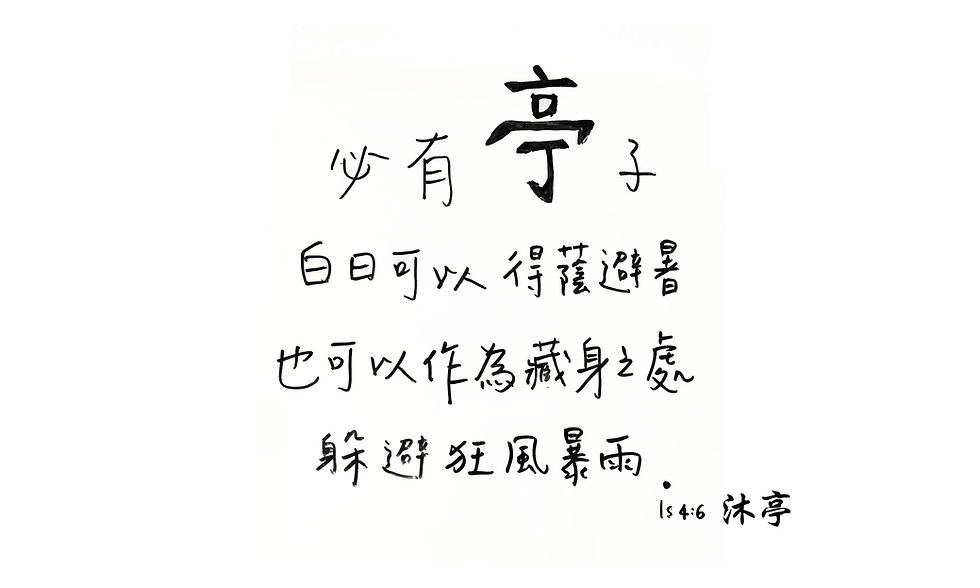 必有亭子
白日可以得蔭避暑
也可以作為藏身之處
躲避狂風暴雨.
Is 4:6 沐亭